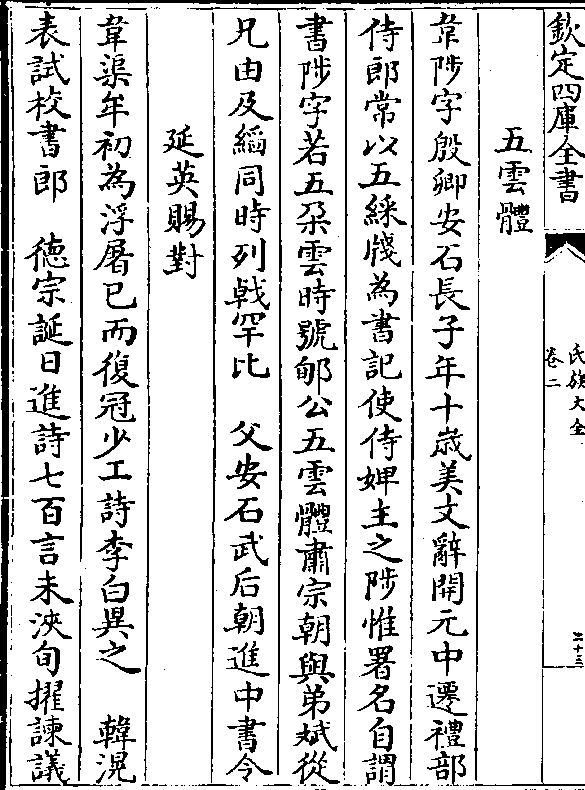 欽定四庫全書
氏族大全
卷二
二十三
五雲體
韋陟字殷卿安石長子年十歲美文辭開元中遷禮部
侍郎常以五綵牋為書記使侍婢主之陟惟署名自謂
書陟字若五朵雲時號郇公五雲體肅宗朝與弟斌從
兄由及縚同時列戟罕比 父安石武后朝進中書令
延英賜對
韋渠年初為浮屠已而復冠少工詩李白異之 韓滉
表試校書郎 德宗誕日進詩七百言未浹旬擢諫議